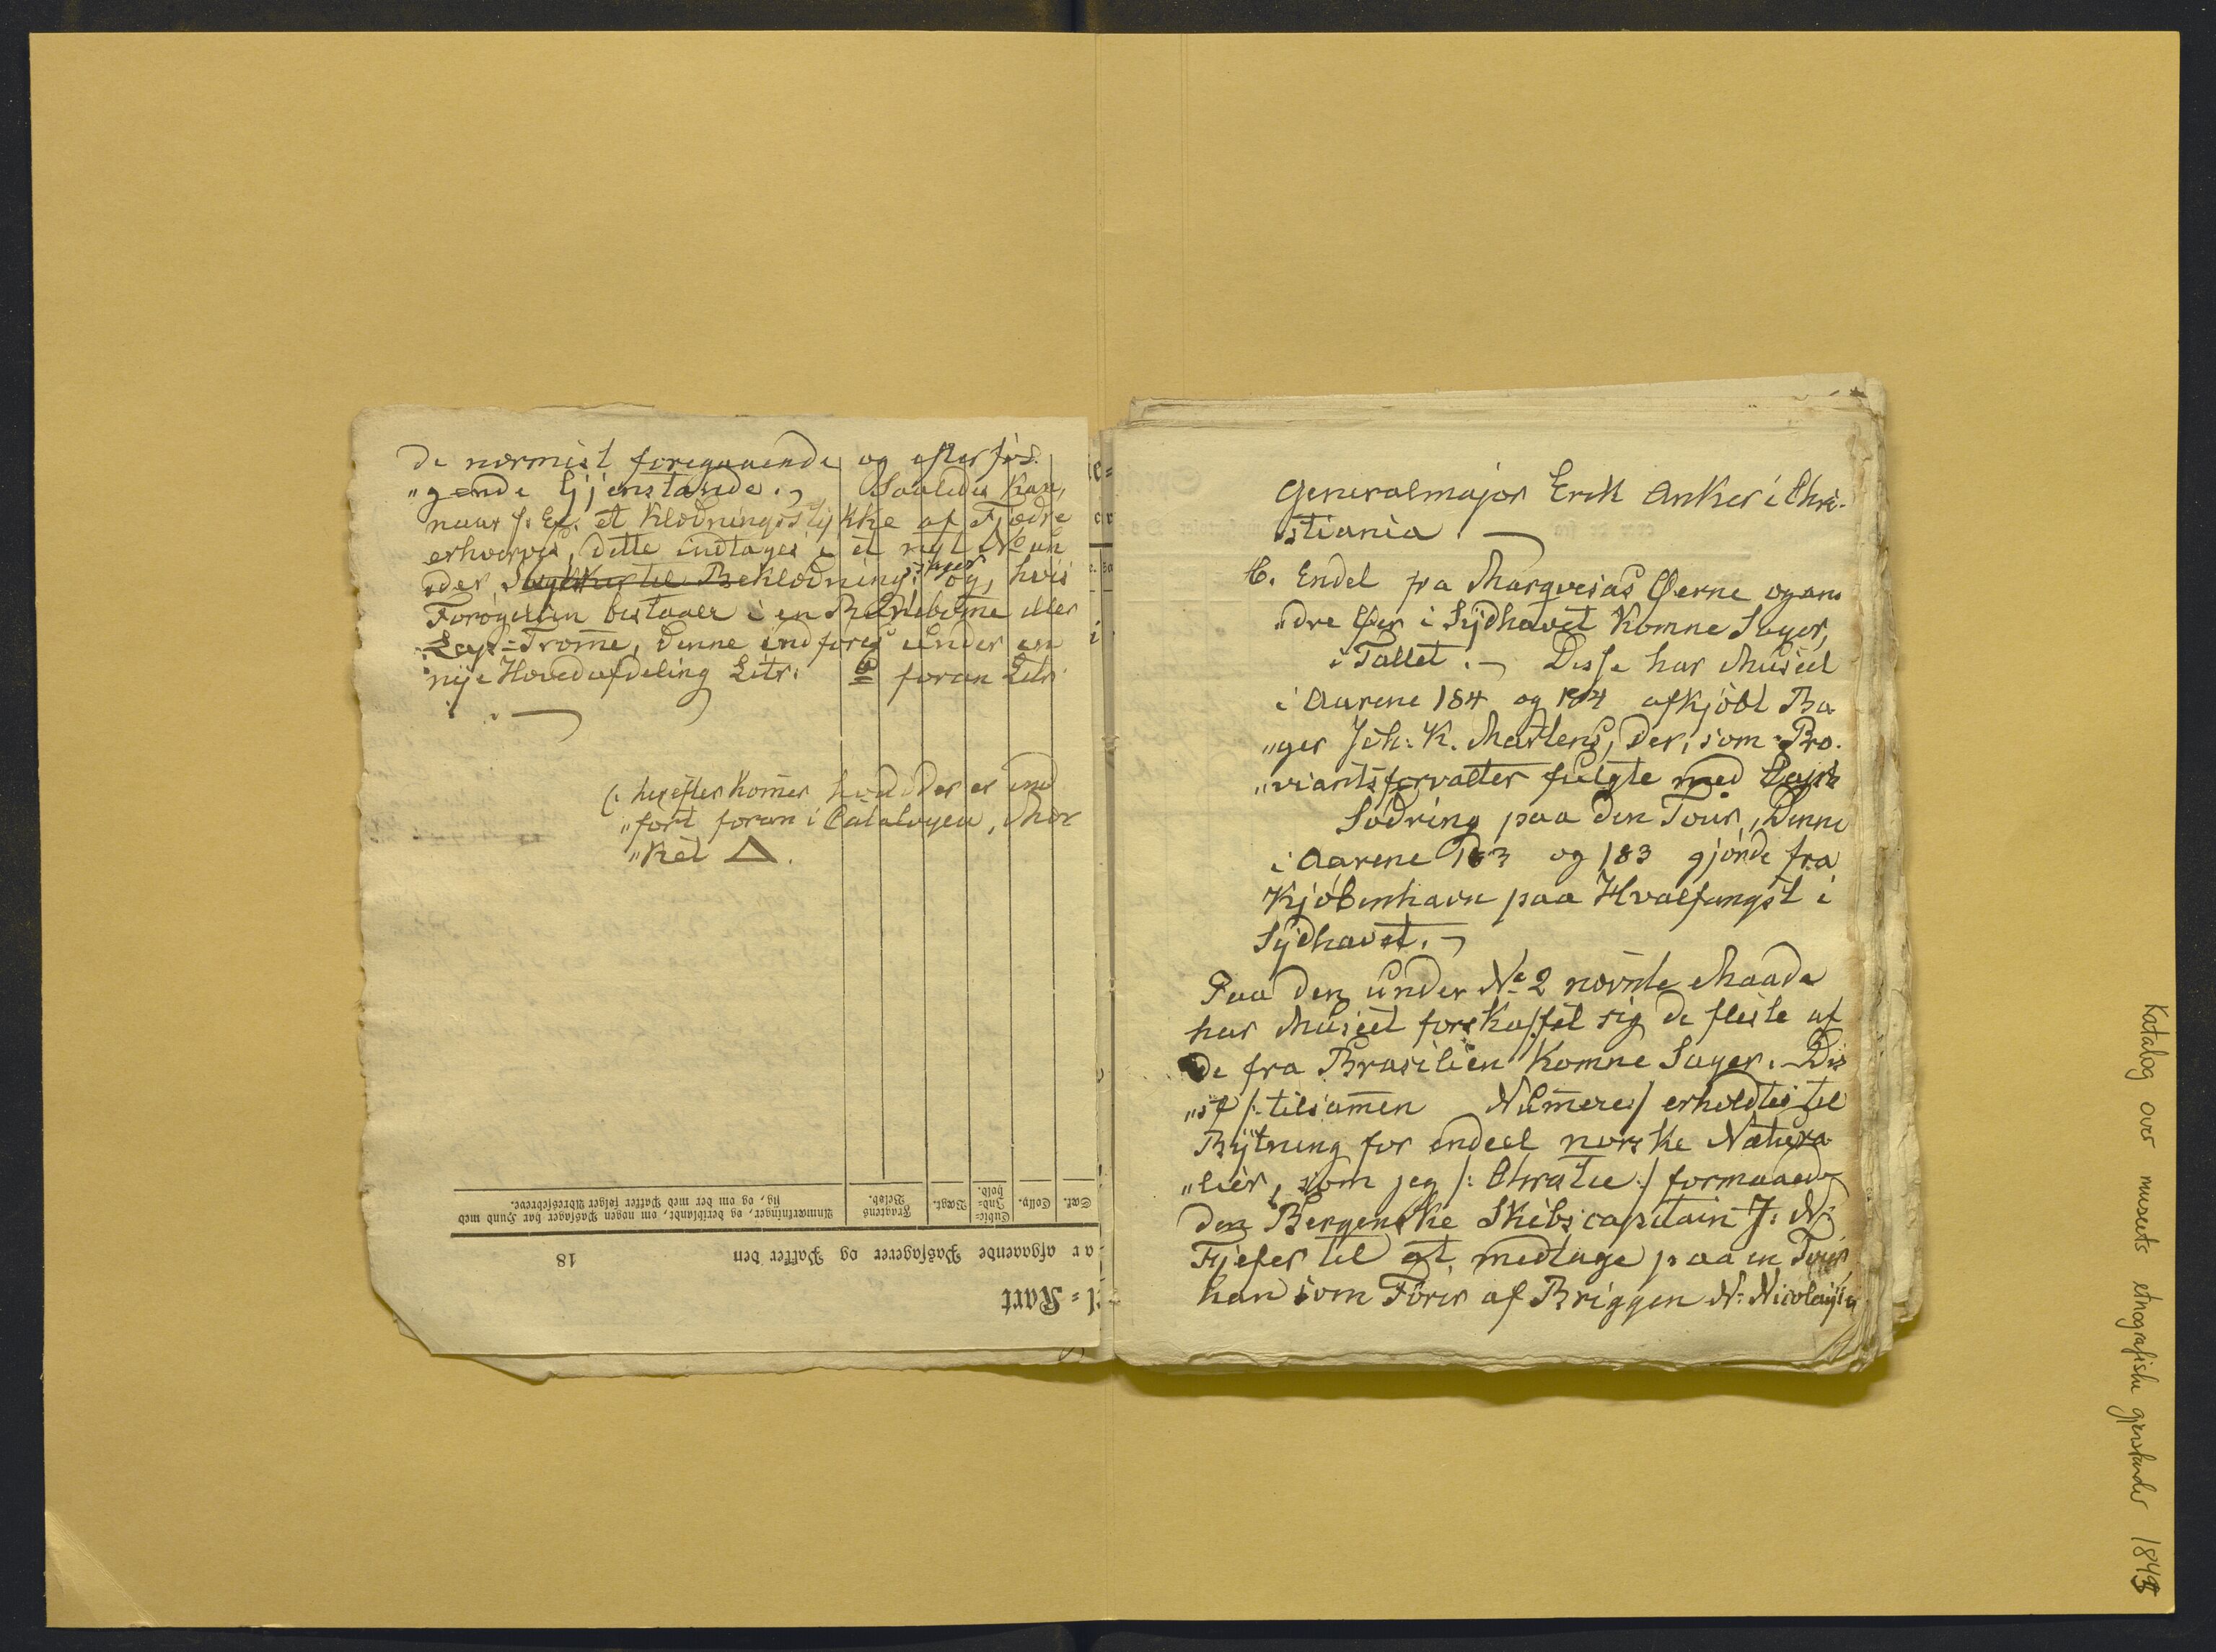 de nærmest foregaaende og efterføl-
„gende Gjenstande. Saaledes kan,
naar f: Ex: et Klædningsstykke af Fjædre
erhverves, dette indtages i et nyt No un
der Stykker til Beklædnings:sager og, hvis
Forøgelsen bestaaer i en eller
Lap-Tromme, denne indføres under en
nye Hovedafdeling Litr: foran Litr:
(: herefter kommer hvad der er ind
„ført foran i Catalogen, Mær
„ket △.
Cat.
Colly.
Cubic-
Ind-
hold.
Vægt.
Fragtens
Beløb.
Anmærkninger, og deriblandt, om nogen Passager har Hund med
sig, og om der med Pakker følger Adressebreve.
afgaaende Passagerer og Pakker den 18
l=Kart
Generalmajor Erik Anker i Chri-
stiania.
C. Endel fra Marqvesas Øerne og an
„dre Øer i Sydhavet komne Sager,
i Tallet. Disse har Museet
i Aarene 184 og 184 afkjøbt Ba
„ger Joh: K. Martens, der, som Pro-
„viantsforvalter fulgte med Capt:
Södring paa den Tour, Denne
i Aarene 183 og 183 gjorde fra
Kjøbenhavn paa Hvalfangst i
Sydhavet.
Paa den under No 2 nævnte Maade
har Museet forskaffet sig de fleste af
de fra Brasilien komne Sager. Dis
„se /: tilsammen Numere:/ erholdtes til
Bytning for endeel norske Natura
„lier, som jeg /: Chratie:/ formaaede
den Bergenske Skibscapitain J: N:
Fjefer til at medtage paa en Tour,
han som Fører af Briggen N: Nicolaysen
Katalog over museets etnografiske gjenstander 1843